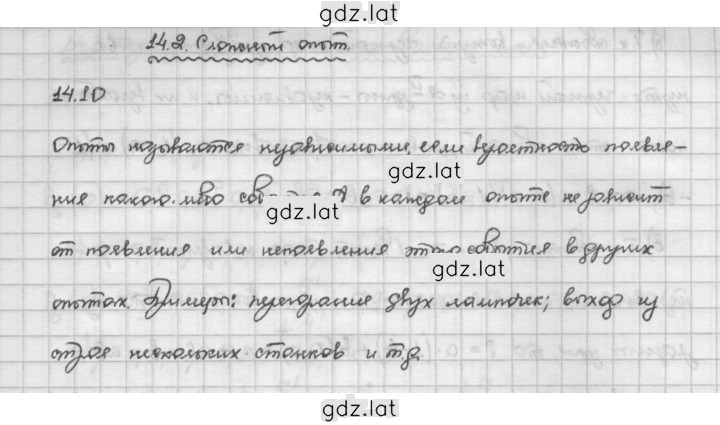 gdz.lat
14.2. Сложный опыт.
14.10
Опыты называются независимыми, если вероятность появле-
ния какого-либо события A в каждом опыте не зависит
gdz.lat
gdz.lat
от появления или непоявления этого события в других
gdz.lat
опытах. Примеры: перегорание двух лампочек; выход из
строя нескольких станков и т.д.
gdz.lat